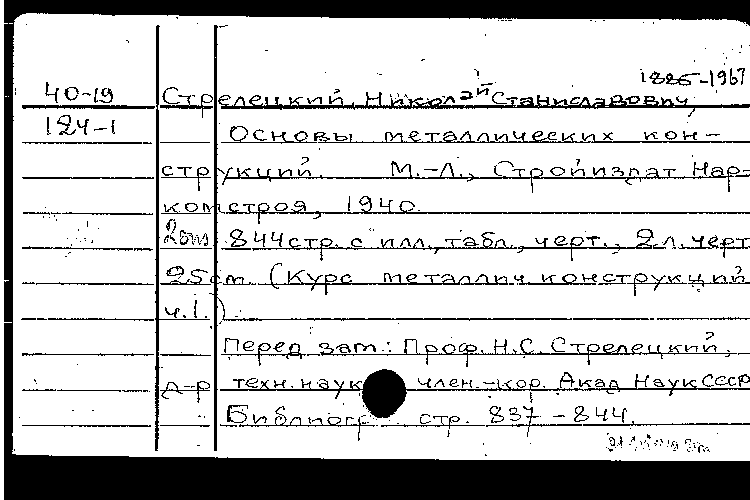 1885-1967
40-19 Стрелецкий, Николай Станиславович,
124-1 Основы металлических кон-
струкций. М.-Л., Стройиздат Нар-
комстроя, 1940.
844 стр. с илл., табл., черт., 2 л. черт.
25 см. (Курс металлич. конструкций
ч. I.)
Перед заг.: Проф. Н.С. Стрелецкий,
д-р техн. наук член.-кор. Акад Наук СССР
Библиогр. стр. 837-844.